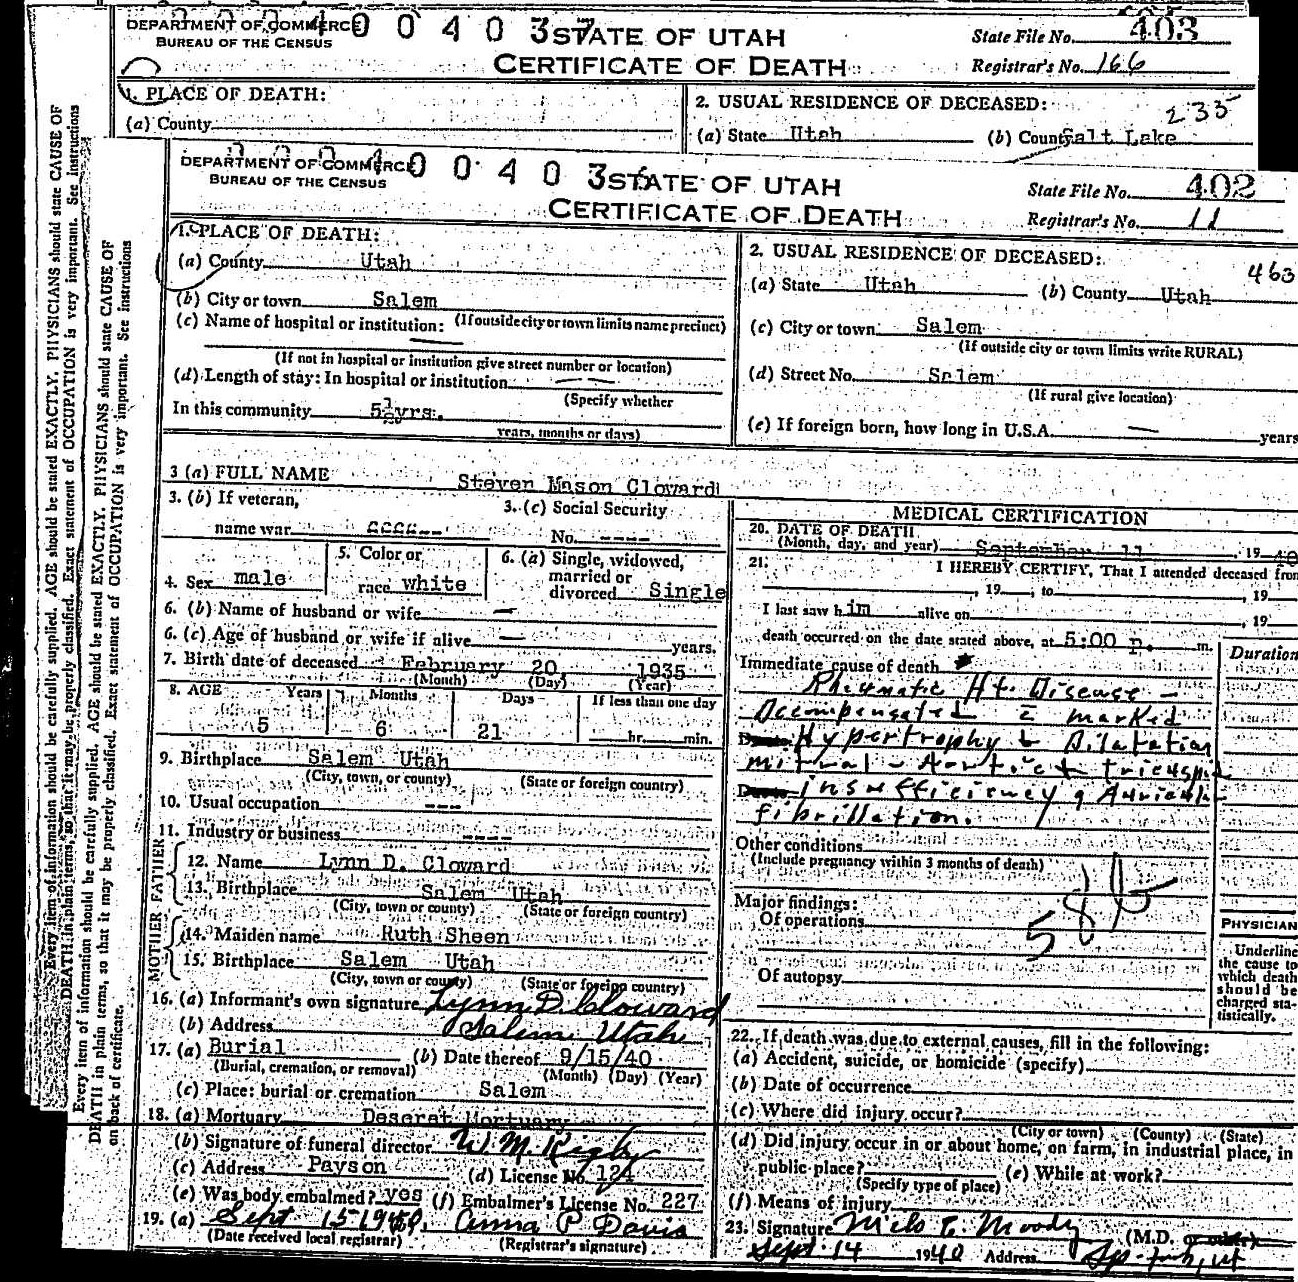 DEPARTMENT OF COMMERCE
BUREAU OF THE CENSUS
0 0 4 0 37
STATE OF UTAH
CERTIFICATE OF DEATH
State File No. 403
Registrar's No. 166
1. PLACE OF DEATH:
(a) County
2. USUAL RESIDENCE OF DECEASED: 235
(a) State Utah (b) County Salt Lake
DEPARTMENT OF COMMERCE
BUREAU OF THE CENSUS
0 0 4 0 3
STATE OF UTAH
CERTIFICATE OF DEATH
State File No. 402
Registrar's No. 11
1. PLACE OF DEATH:
(a) County Utah
(b) City or town Salem
(If outside city or town limits name precinct)
(c) Name of hospital or institution:
(If not in hospital or institution give street number or location)
(d) Length of stay: In hospital or institution
(Specify whether
In this community 5½ yrs.
years, months or days)
2. USUAL RESIDENCE OF DECEASED: 463
(a) State Utah (b) County Utah
(c) City or town Salem
(If outside city or town limits write RURAL)
(d) Street No. Salem
(If rural give location)
(e) If foreign born, how long in U.S.A. — years
3 (a) FULL NAME Steven Mason Cloward
3. (b) If veteran,
name war
3. (c) Social Security
No. ----
4. Sex male
5. Color or
race white
6. (a) Single, widowed,
married or
divorced Single
6. (b) Name of husband or wife —
6. (c) Age of husband or wife if alive — years.
7. Birth date of deceased February 20 1935
(Month) (Day) (Year)
8. AGE Years Months Days If less than one day
5 6 21 hr. min.
9. Birthplace Salem Utah
(City, town, or county) (State or foreign country)
10. Usual occupation ---
11. Industry or business ----
FATHER
12. Name Lynn D. Cloward
13. Birthplace Salem Utah
(City, town or county) (State or foreign country)
MOTHER
14. Maiden name Ruth Sheen
15. Birthplace Salem Utah
(City, town or county) (State or foreign country)
16. (a) Informant's own signature Lynn D. Cloward
(b) Address Salem Utah
17. (a) Burial (b) Date thereof 9/15/40
(Burial, cremation, or removal) (Month) (Day) (Year)
(c) Place: burial or cremation Salem
18. (a) Mortuary Deseret Mortuary
(b) Signature of funeral director W. M. Rigby
(c) Address Payson (d) License No. 124
(e) Was body embalmed? yes (f) Embalmer's License No. 227
19. (a) Sept 15 1940, Anna P Davis
(Date received local registrar) (Registrar's signature)
MEDICAL CERTIFICATION
20. DATE OF DEATH
(Month, day, and year) September 11, 1940
21. I HEREBY CERTIFY, That I attended deceased from
, 19 ; to , 19
I last saw him alive on , 19
death occurred on the date stated above, at 5:00 p. m.
Duration
Immediate cause of death
Rheumatic Ht. Disease -
Decompensated c̄ marked
Hypertrophy & Dilatation
mitral - Aortic & tricuspid
insufficiency & Auricular
fibrillation.
Other conditions
(Include pregnancy within 3 months of death)
Major findings:
Of operations
Of autopsy
58
PHYSICIAN
Underline
the cause to
which death
should be
charged sta-
tistically.
22. If death was due to external causes, fill in the following:
(a) Accident, suicide, or homicide (specify)
(b) Date of occurrence
(c) Where did injury occur?
(City or town) (County) (State)
(d) Did injury occur in or about home, on farm, in industrial place, in
public place? (e) While at work?
(Specify type of place)
(f) Means of injury
23. Signature Milo C. Moody (M.D.
Sept. 14 1940 Address Sp-fork, Ut
Every item of information should be carefully supplied. AGE should be stated EXACTLY. PHYSICIANS should state CAUSE OF
DEATH in plain terms, so that it may be properly classified. Exact statement of OCCUPATION is very important. See instructions
Every item of information should be carefully supplied. AGE should be stated EXACTLY. PHYSICIANS should state CAUSE OF
DEATH in plain terms, so that it may be properly classified. Exact statement of OCCUPATION is very important. See instructions
on back of certificate.